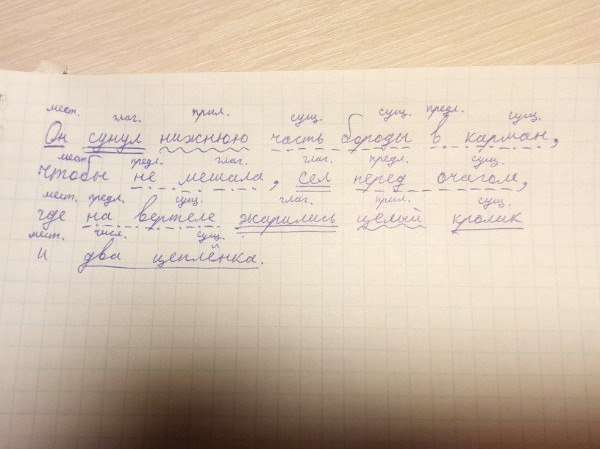 мест. глаг. прил. сущ. сущ. предл. сущ.
Он сунул нижнюю часть бороды в карман,
мест. предл. глаг. глаг. предл. сущ.
чтобы не мешала, сел перед очагом,
мест. предл. сущ. глаг. прил. сущ.
где на вертеле жарились целый кролик
мест. числ. сущ.
и два цеплёнка.